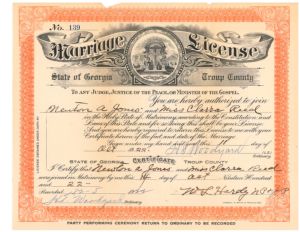 No. 139
Marriage License
State of Georgia Troup County
TO ANY JUDGE, JUSTICE OF THE PEACE, OR MINISTER OF THE GOSPEL
You are hereby authorized to join
Newton A Jones and Miss Clara Reed
in the Holy State of Matrimony, according to the Constitution and
Laws of this State and for so doing this shall be your License
And you are hereby required to return this License to me with your
Certificate hereon of the fact and date of the Marriage
Given under my hand
STATE OF GEORGIA Certificate TROUP COUNTY
I Certify that Newton A Jones and Miss Clara Reed
were joined in Matrimony by me this day of Oct
Hundred and 22
Recorded
PARTY PERFORMING CEREMONY RETURN TO ORDINARY TO BE RECORDED